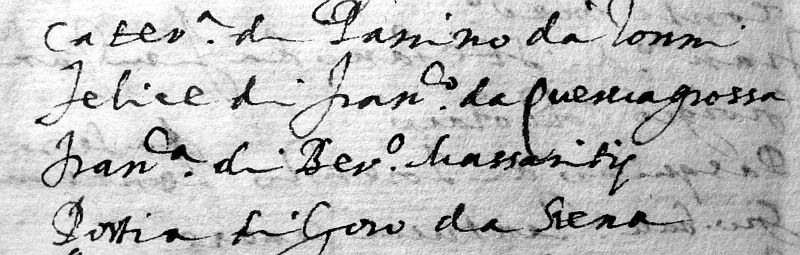 Cater.ª di Passino da Tonni
Felice di Fran.co da Querciagrossa
Fran.ca di Ber.o Massaritij
Portia di Goro da Siena